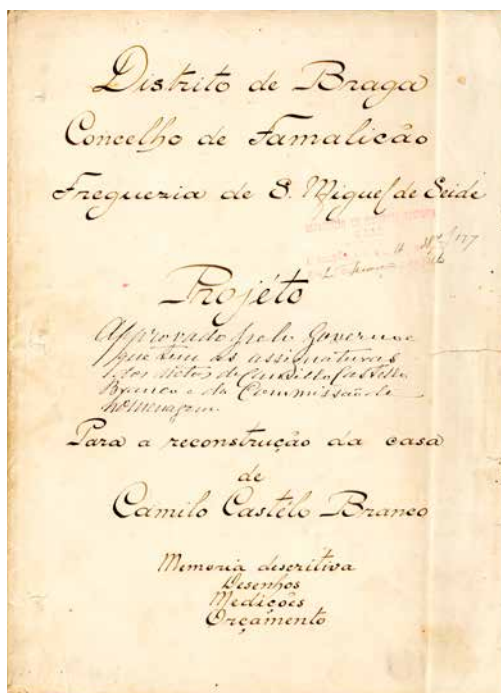 Distrito de Braga
Concelho de Famalicão
Freguezia de S. Miguel de Seide
Projéto
Approvado pelo Governo e
que tem as assignaturas
dos netos de Camillo Castello
Branco e da Commissão de
homenagem
Para a reconstrução da casa
de
Camilo Castélo Branco
Memoria descritiva
Desenhos
Medições
Orçamento